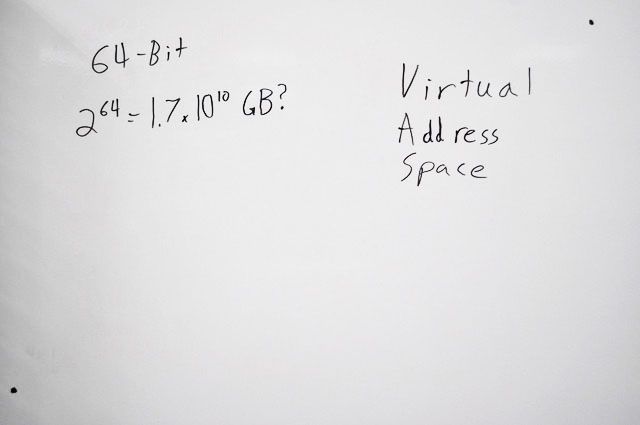 64-Bit
2^64 = 1.7 x 10^10 GB?
Virtual
Address
Space